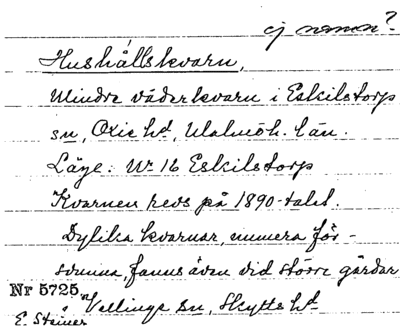 ej namn?
Hushållskvarn,
Mindre väderkvarn i Eskilstorps
sn, Oxie hd, Malmöh. län.
Läge: Nr 16 Eskilstorp
Kvarnen revs på 1890-talet.
Dylika kvarnar, numera för-
svunna, fanns även vid större gårdar
Nr 5725. i Vellinge sn, Skytts hd
E. Steiner